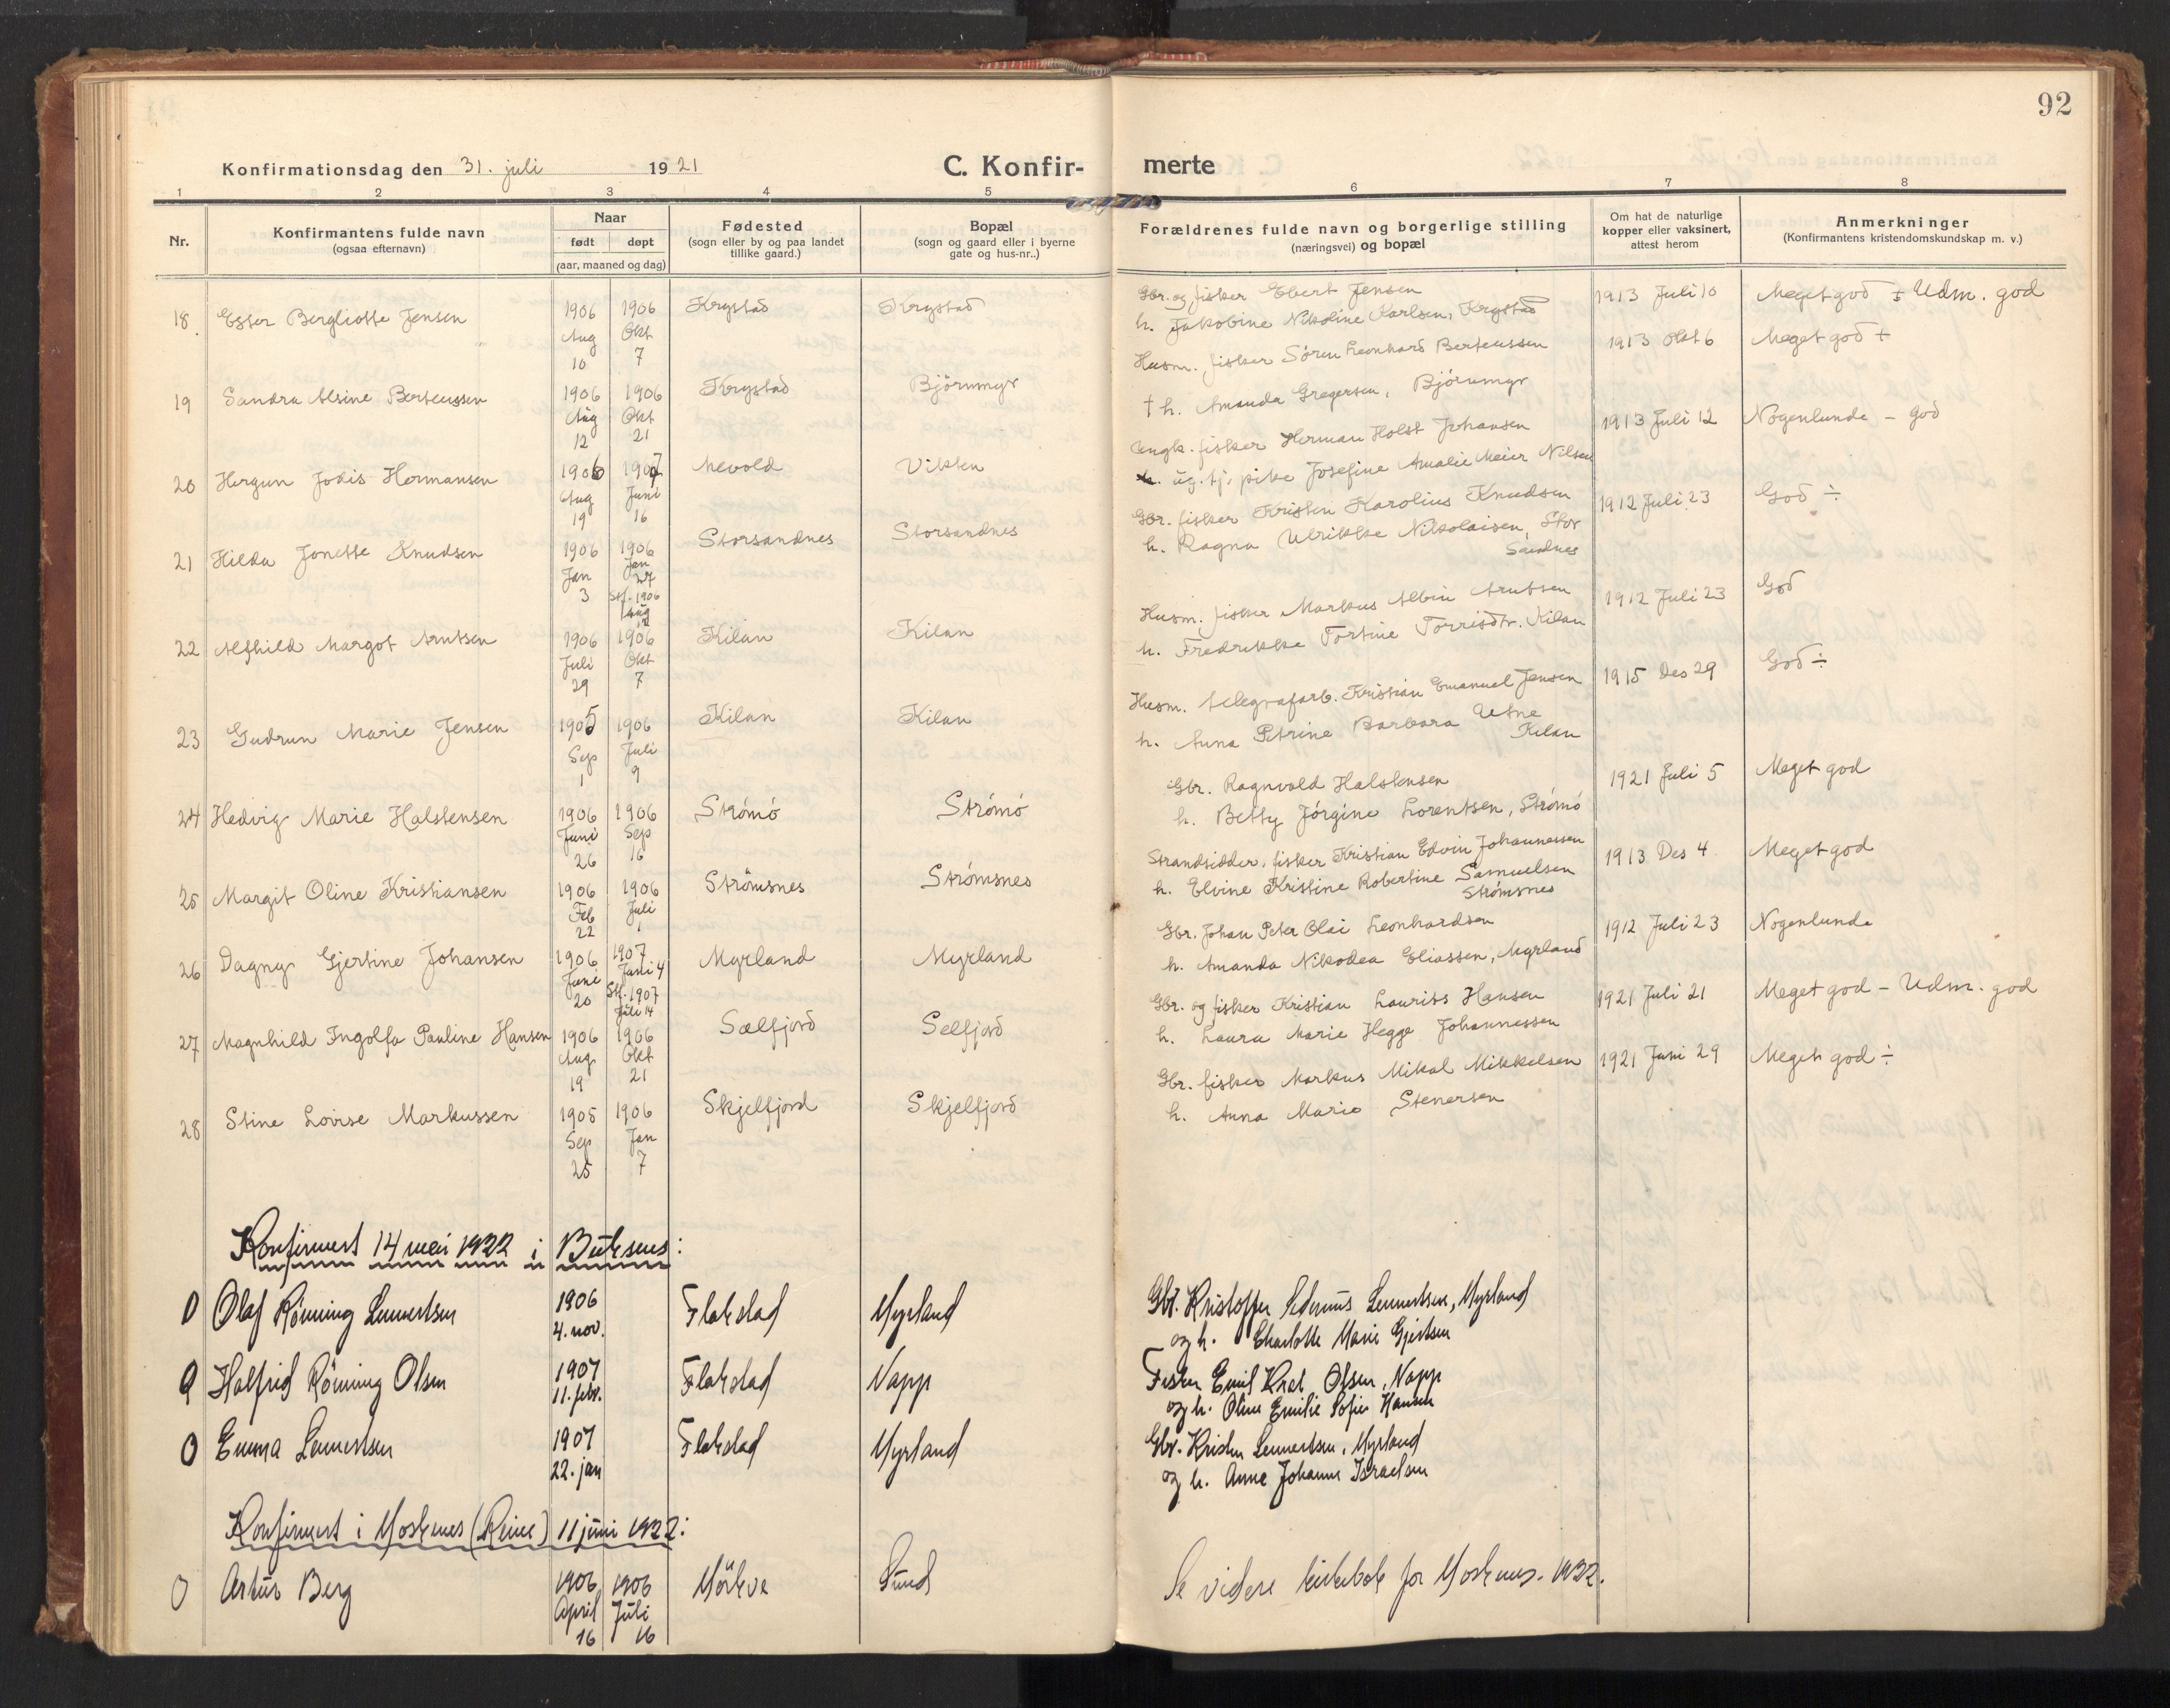 92
Konfirmationsdag den 31. juli 1921
C. Konfir-
merte
1 2 3 4 5 6 7 8
Nr.
Konfirmantens fulde navn
(ogsaa efternavn)
Naar
født døpt
(aar, maaned og dag)
Fødested
(sogn eller by og paa landet
tillike gaard.)
Bopæl
(sogn og gaard eller i byerne
gate og hus-nr..)
Forældrenes fulde navn og borgerlige stilling
(næringsvei) og bopæl
Om hat de naturlige
kopper eller vaksinert,
attest herom
Anmerkninger
(Konfirmantens kristendomskundskap m. v.)
18 Ester Bergliotte Jensen
1906 Aug 10
1906 Okt 7
Krystad
Krystad
Gbr. og fisker Ebert Jensen
h. Jakobine Nikoline Karlsen, Krystad
1913 Juli 10
Meget god ± Udm. god
19 Sandra Alsine Berteussen
1906 Aug 12
1906 Okt 21
Krystad
Björnmyr
Husm. fisker Sören Leonhard Berteussen
† h. Amanda Gregersen, Björnmyr
1913 Okt 6
Meget god +
20 Hergun Jodis Hermansen
1906 Aug 19
1907 Juni 16
Nevold
Vikten
Ungk. fisker Herman Holst Johansen
ug. tj. pike Josefine Amalie Meier Nilsen
1913 Juli 12
Nogenlunde - god
21 Hilda Jonette Knudsen
1906 Jan 3
1906 Jan 27
Stf. 1906
Aug 12
Storsandnes
Storsandnes
Gbr. fisker Kristen Karolius Knudsen
h. Ragna Ulrikke Nikolaisen, Stor
Sandnes
1912 Juli 23
God ÷
22 Alfhild Margot Arntsen
1906 Juli 29
1906 Okt 7
Kilan
Kilan
Husm. fisker Markus Albin Arntsen
h. Fredrikke Tortine Torrisdtr. Kilan
1912 Juli 23
God
23 Gudrun Marie Jensen
1905 Sep 1
1906 Juli 9
Kilan
Kilan
Husm. telegrafarb. Kristian Emanuel Jensen
h. Anna Petrine Barbara Utne
Kilan
1915 Des 29
God ÷
24 Hedvig Marie Halstensen
1906 Juni 26
1906 Sep 16
Strömö
Strömö
Gbr. Ragnvald Halstensen
h. Betty Jörgine Lorentsen, Strömö
1921 Juli 5
Meget god
25 Margit Oline Kristiansen
1906 Feb 22
1906 Juli 1
Strömsnes
Strömsnes
Strandsidder, fisker Kristian Edvin Johannessen
h. Elvine Kristine Robertine Samuelsen
Strömsnes
1913 Des 4
Meget god
26 Dagny Gjertine Johansen
1906 Juni 20
1907 Juni 4
Stf. 1907
Juli 14
Myrland
Myrland
Gbr. Johan Peter Olai Leonhardsen
h. Amanda Nikodea Eliassen, Myrland
1912 Juli 23
Nogenlunde
27 Magnhild Ingolfa Pauline Hansen
1906 Aug 19
1906 Okt 21
Sælfjord
Selfjord
Gbr. og fisker Kristian Laurits Hansen
h. Laura Marie Hegge Johannessen
1921 Juli 21
Meget god - Udm. god
28 Stine Lovise Markussen
1905 Sep 25
1906 Jan 7
Skjelfjord
Skjelfjord
Gbr. fisker Markus Mikal Mikkelsen
h. Anna Marie Stenersen
1921 Juni 29
Meget god ÷
Konfirmert 14 mai 1922 i Buksnes:
0 Olaf Rönning Lennertsen
1906
4. nov.
Flakstad
Myrland
Gbr. Kristoffer Lennertsen, Myrland
og h. Charlotte Marie Gjertsen
0 Halfrid Rönning Olsen
1907
11. febr.
Flakstad
Napp
Fisker Emil Olsen, Napp
og h. Oline Emilie Sofie Hansen
0 Emma Lennertsen
1907
22. jan
Flakstad
Myrland
Gbr. Kristen Lennertsen, Myrland
og h. Anne Johanne Israelsen
Konfirmert i Moskenes (Reine) 11 juni 1922:
0 Artur Berg
1906 April 16
1906 Juli 16
Mörkve
Sund
Se videre kirkebok for Moskenes. 1922.